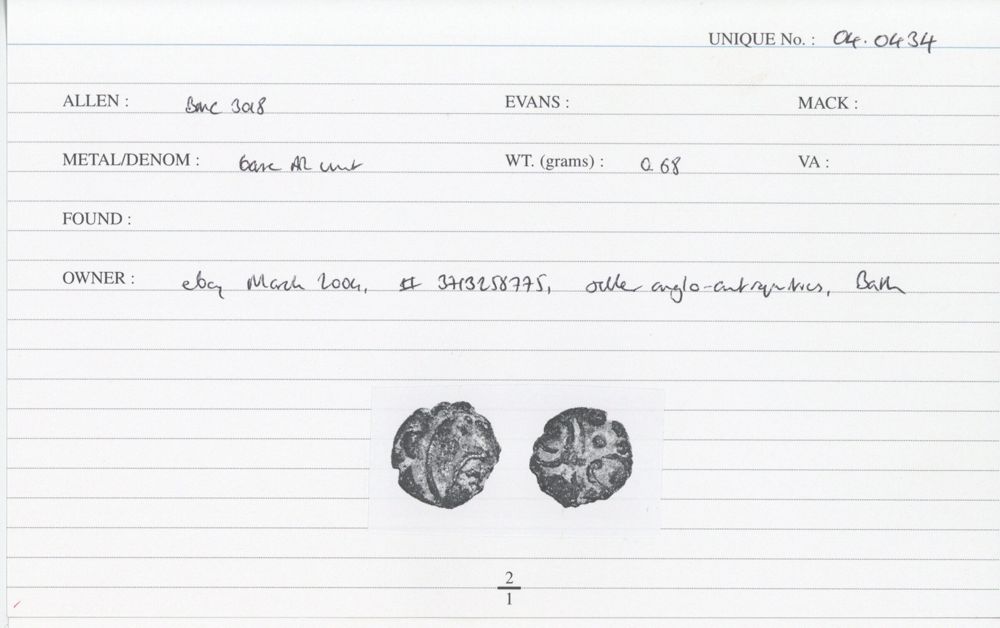 UNIQUE No. : 04.0434
ALLEN : BMC 3018 EVANS : MACK :
METAL/DENOM : base AR unit WT. (grams) : 0.68 VA :
FOUND :
OWNER : ebay March 2004, # 3713258775, seller anglo-antiquities, Bath
2
1